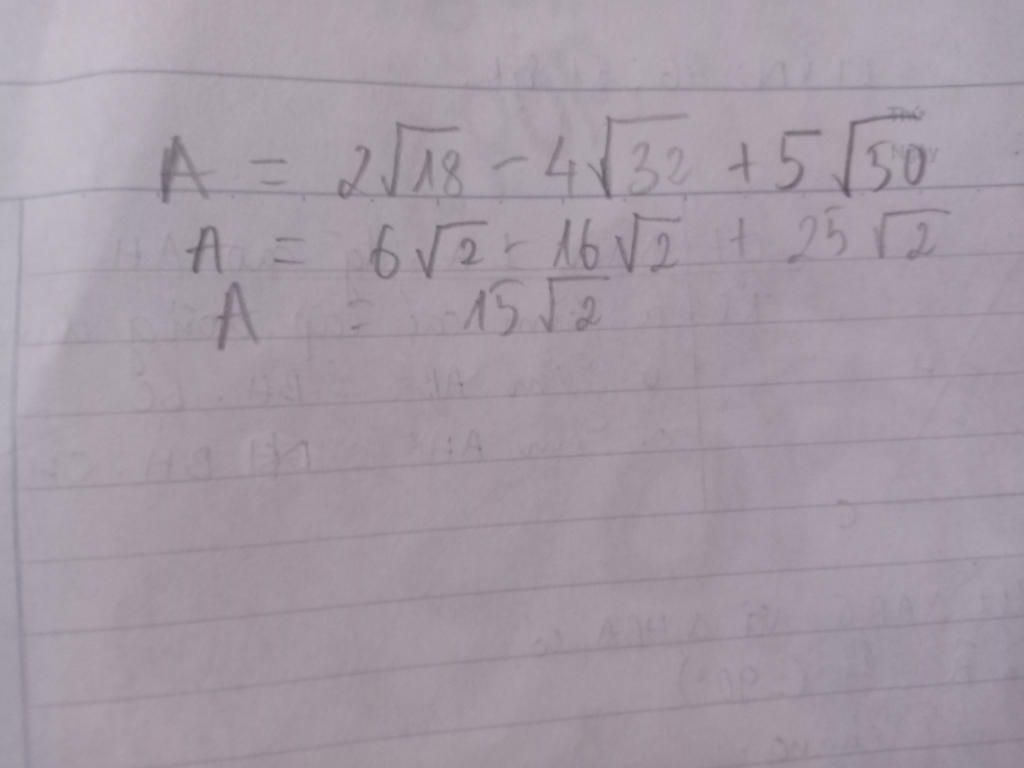 A = 2√18 - 4√32 + 5√50
A = 6√2 - 16√2 + 25√2
A = 15√2